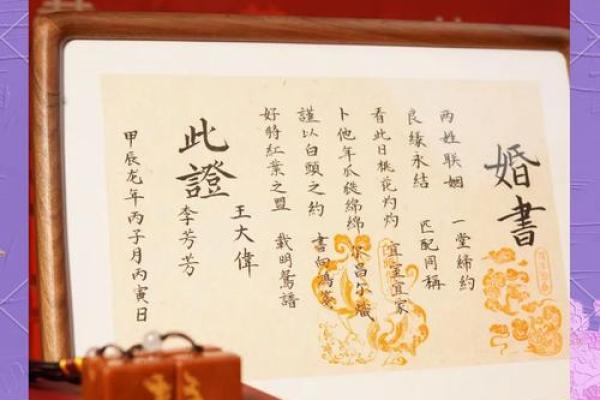 婚書
两姓联姻 一堂締约
良缘永结 匹配同稱
看此日桃花灼灼 宜室宜家
卜他年瓜瓞綿綿 尔昌尔熾
謹以白頭之约 書向鴻箋
好將紅葉之盟 載明鴛譜
此證
王大偉
李芳芳
甲辰龙年丙子月丙寅日